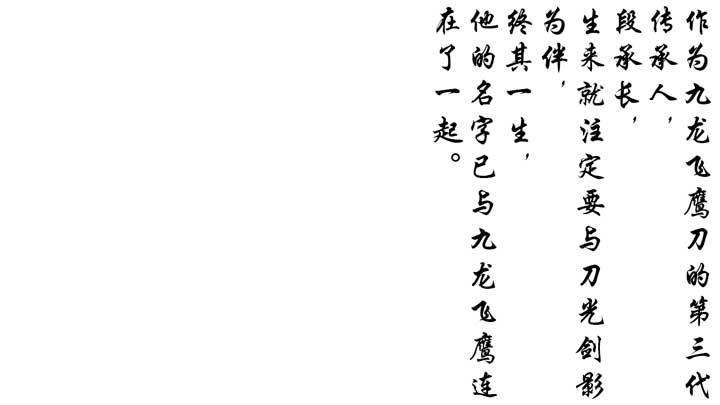 作为九龙飞鹰刀的第三代
传承人，
段承长，
生来就注定要与刀光剑影
为伴，
终其一生，
他的名字已与九龙飞鹰连
在了一起。